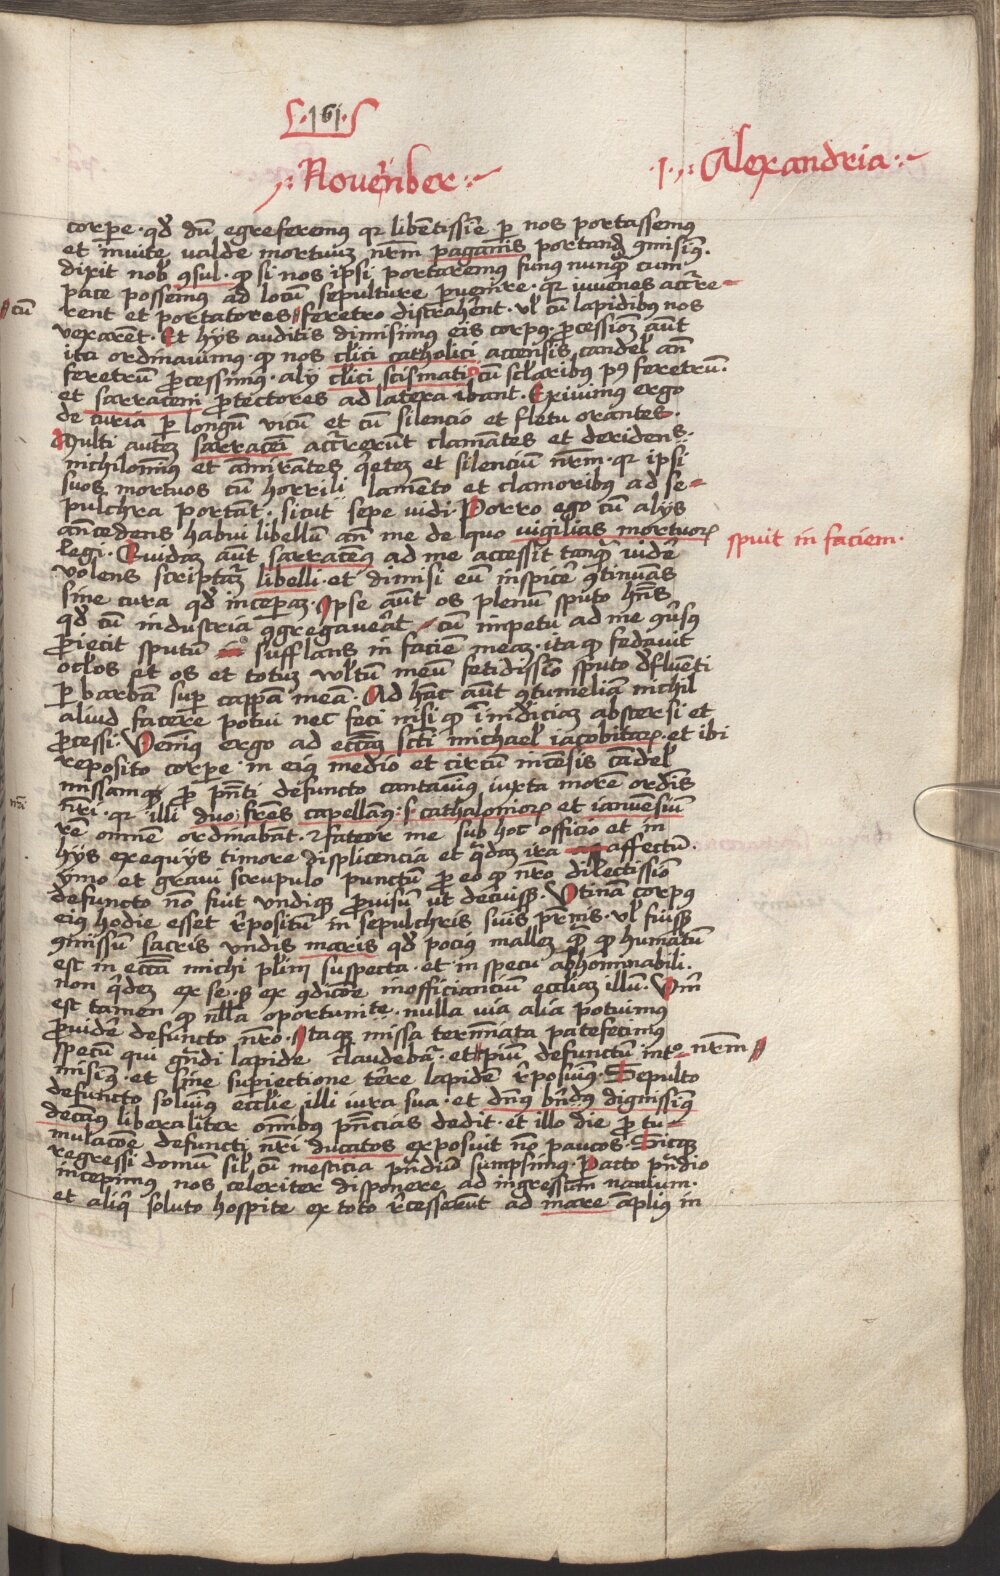 ·161·
November
·I· Alexandria
corpore · qd̄ dū egreferemꝯ qr libētissīe ꝑ nos portassemꝯ
et invite valde mortuuꝫ nr̄m paganis portandꝫ ꝯmisimꝯ ·
dixit nob̄ ꝯsul · qꝫ si nos ipsi portaremꝯ funꝯ nunqꝫ cum
pace possemꝯ ad locū sepulture pervenire · qr iuvenes accurre-
cū
rent et portatores feretro distraherēt · vl̄ cū lapidibꝯ nos
vexarēt · Et hys auditis dimisimꝯ eis corpꝯ · ꝓcessionē aūt
ita ordinavimꝯ · qꝫ nos cl̄ici catholici accensis candel̄ an̄
feretrū ꝓcessimꝯ · aly cl̄ici scismatici cū sclaribꝯ pꝯ feretrū ·
et sarraceni ꝓtectores ad latera ibant · Exivimꝯ ergo
de curia ꝑ longū vicū et cū silencio et fletu orantes ·
Multi auteꝫ sarraceni accurrerūt clamātes et deridens ·
nichilominꝯ et amirātes quieteꝫ et silenciū nr̄m · qr ipsi
suos mortuos cū horribili lamēto et clamoribꝯ ad se-
pulchra portāt · sicut sepe vidi · Porro ego cū alys
antecedens habui libellū an̄ me de quo vigilias mortuoꝝ
spuit in faciem ·
legi · Quidaꝫ aūt sarracenꝯ ad me accessit tanqꝫ vide
volens scripturaꝫ libelli · et dimisi eū inspicere ꝯtinuās
sine cura qd̄ inceperaꝫ · Ipse aūt os plenū sputo hn̄s
qd̄ cū industria ꝯgregaverat cū impetu ad me ꝯversꝯ
ꝓiecit sputū sufflans in faciē meaꝫ · ita qꝫ fedavit
oc̄los et os et totuꝫ vultū meū fetidissīo sputo defluēti
ꝑ barbā suꝑ cappā meā · Ad hāc aūt ꝯtumeliā nichil
aliud facere potui nec feci nisi qꝫ īmūdiciaꝫ abstersi et
ꝓcessi · Venimꝯ ergo ad eccl̄iā sct̄i michael̄ iacobitaꝝ · et ibi
reposito corpore · in eiꝯ medio et circū incēsis cādel̄
missamqꝫ ꝓ pn̄ti defuncto cantavimꝯ iuxta morē ordīs
nr̄i · qr illi duo fr̄es capellanꝯ · s · cathaloniorꝝ et ianuēsiū
rē omnē ordinabāt · fateor me sub hoc officio et in
hys exequys timore displicencia et quadaꝫ ira affectū ·
ymo et gravi scrupulo punctū ꝓ eo qꝫ nr̄o dilectissīo
defuncto nō fuit undiqꝫ ꝓvisū ut decuissꝫ · Utinā corpꝯ
eiꝯ hodie esset rēpositū in sepulchris suis pr̄nis · vl̄ fuissꝫ
ꝯmissū sacris undis maris qd̄ pociꝯ malleꝫ qꝫ qꝫ humatū
est in eccl̄ia michi pl̄imꝫ suspecta · et in specu abhominabili ·
non quideꝫ ex se · sꝫ ex ꝯdicōe inefficianciū eccl̄iaꝫ illū · Ver̄
est tamen qꝫ nl̄la oportunite · nulla via alia potuimꝯ
ꝓvidere defuncto nr̄o · Itaqꝫ missa terminata patefecimꝯ
specū qui grādi lapide claudebat̄ · et piū defunctū intro- nr̄m
misimꝯ · et sine supiectione terre lapidē rēposuimꝯ · Sepulto
defuncto solvimꝯ eccl̄ie illi iura sua · et dn̄s bn̄dꝯ dignissimꝯ
decanꝯ liberaliter omībꝯ pn̄cias dedit · et illo die ꝓ tu-
mulacōe defuncti nr̄i ducatos exposuit nō paucos · Sicqꝫ
regressi domū sil̄ cū mesticia prādiū sumpsimꝯ · Facto prādio
incepimꝯ nos celeriter disponere ad ingressum navium ·
et aliqui soluto hospite ex toto recesserūt ad mare amplius in